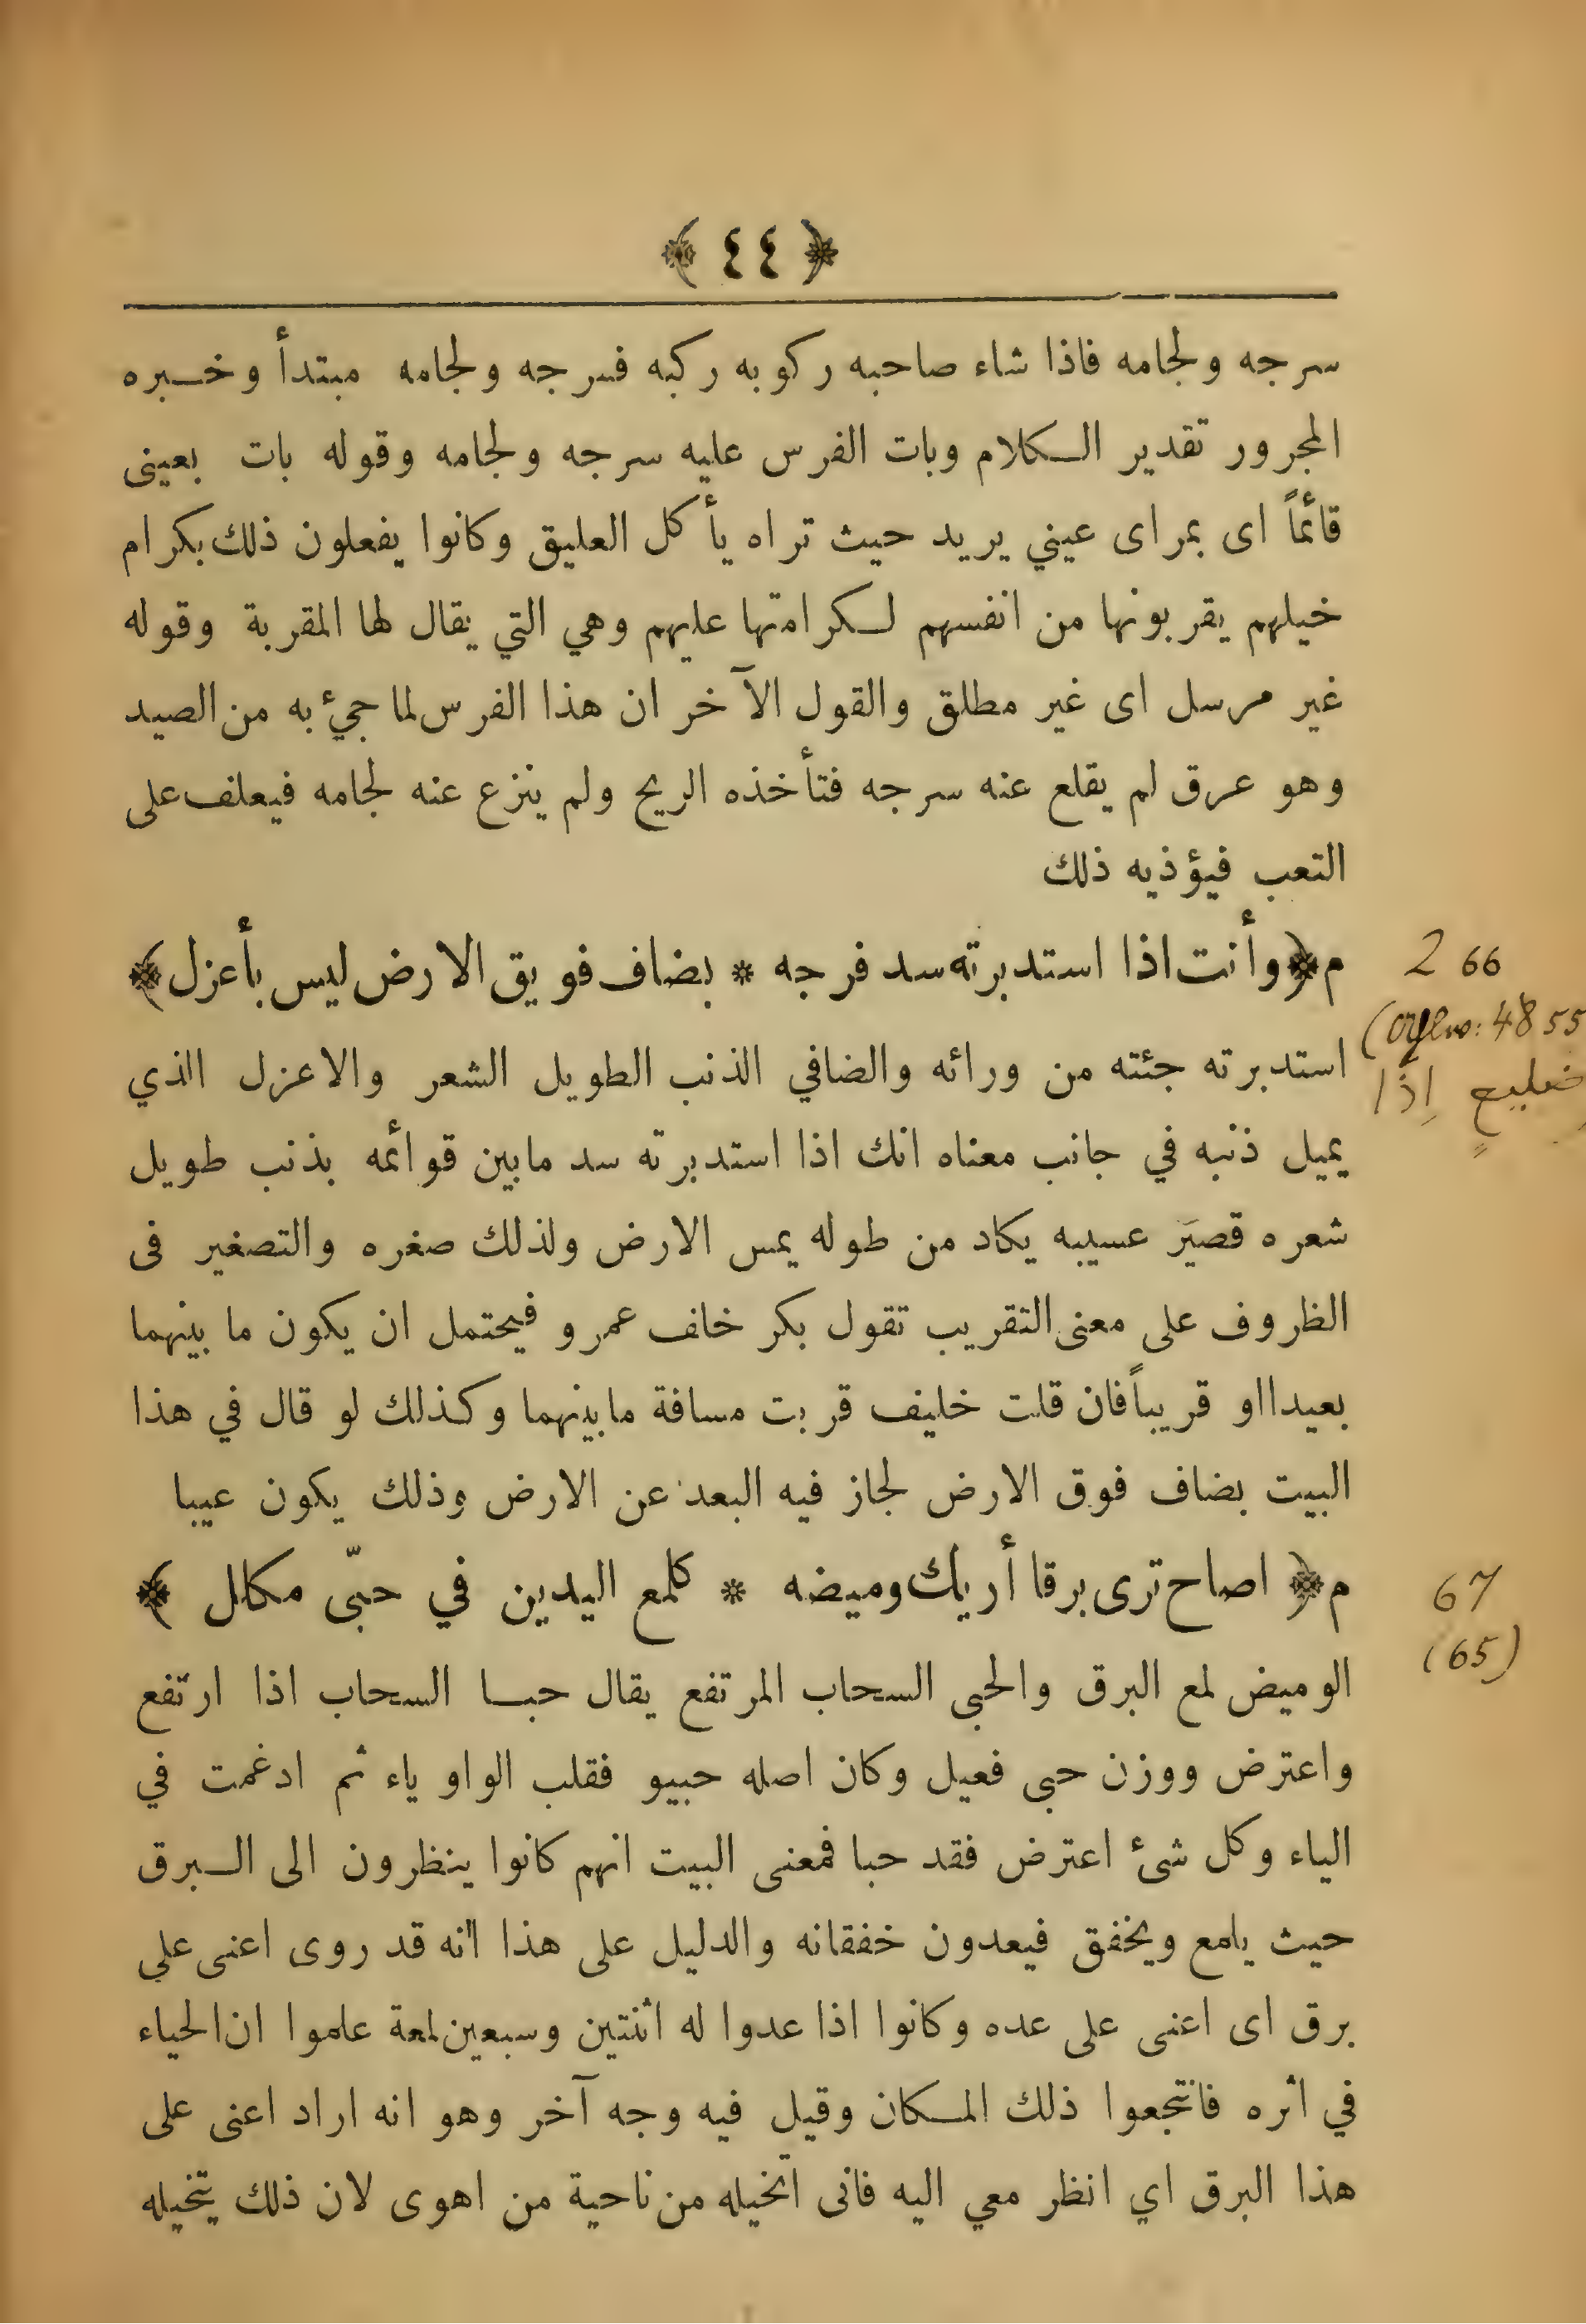 ﴿ ٤٤ ﴾
سرجه ولجامه فاذا شاء صاحبه ركوبه ركبه فسرجه ولجامه مبتدأ وخبره
المجرور تقدير الكلام وبات الفرس عليه سرجه ولجامه وقوله بات بعينى
قائماً اى بمراى عيني يريد حيث تراه يأكل العليق وكانوا يفعلون ذلك بكرام
خيلهم يقربونها من انفسهم لكرامتها عليهم وهي التي يقال لها المقربة وقوله
غير مرسل اى غير مطلق والقول الآخر ان هذا الفرس لما جئ به من الصيد
وهو عرق لم يقلع عنه سرجه فتأخذه الريح ولم ينزع عنه لجامه فيعلف على
التعب فيؤذيه ذلك
م ﴿ وأنت اذا استدبرته سد فرجه * بضاف فويق الارض ليس بأعزل ﴾
2 66
استدبرته جئته من ورائه والضافي الذنب الطويل الشعر والاعزل الذي
(48 55
ضليعٍ إِذا
يميل ذنبه في جانب معناه انك اذا استدبرته سد مابين قوائمه بذنب طويل
شعره قصيَر عسيبه يكاد من طوله يمس الارض ولذلك صغره والتصغير فى
الظروف على معنى التقريب تقول بكر خلف عمرو فيحتمل ان يكون ما بينهما
بعيدا او قريباً فان قلت خليف قربت مسافة مابينهما وكذلك لو قال في هذا
البيت بضاف فوق الارض لجاز فيه البعد عن الارض وذلك يكون عيبا
م ﴿ اصاح ترى برقا أريك وميضه * كلمع اليدين في حبّى مكلل ﴾
67
(65)
الوميض لمع البرق والحبى السحاب المرتفع يقال حبا السحاب اذا ارتفع
واعترض ووزن حبى فعيل وكان اصله حبيو فقلب الواو ياء ثم ادغمت في
الياء وكل شئ اعترض فقد حبا فمعنى البيت انهم كانوا ينظرون الى البرق
حيث يلمع ويخفق فيعدون خفقانه والدليل على هذا انه قد روى اعنى على
برق اى اعنى على عده وكانوا اذا عدوا له اثنتين وسبعين لمعة علموا ان الحياء
في اثره فانتجعوا ذلك المكان وقيل فيه وجه آخر وهو انه اراد اعنى على
هذا البرق اي انظر معي اليه فانى اتخيله من ناحية من اهوى لان ذلك يتخيله